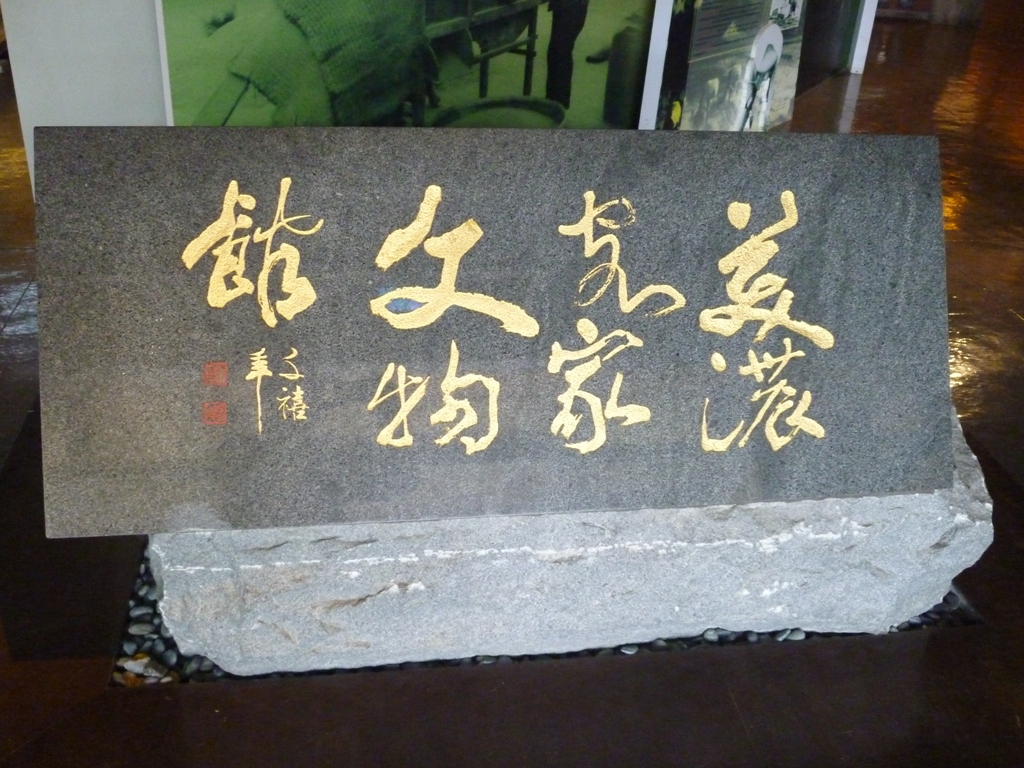 美濃
客家
文物
館
千禧
年